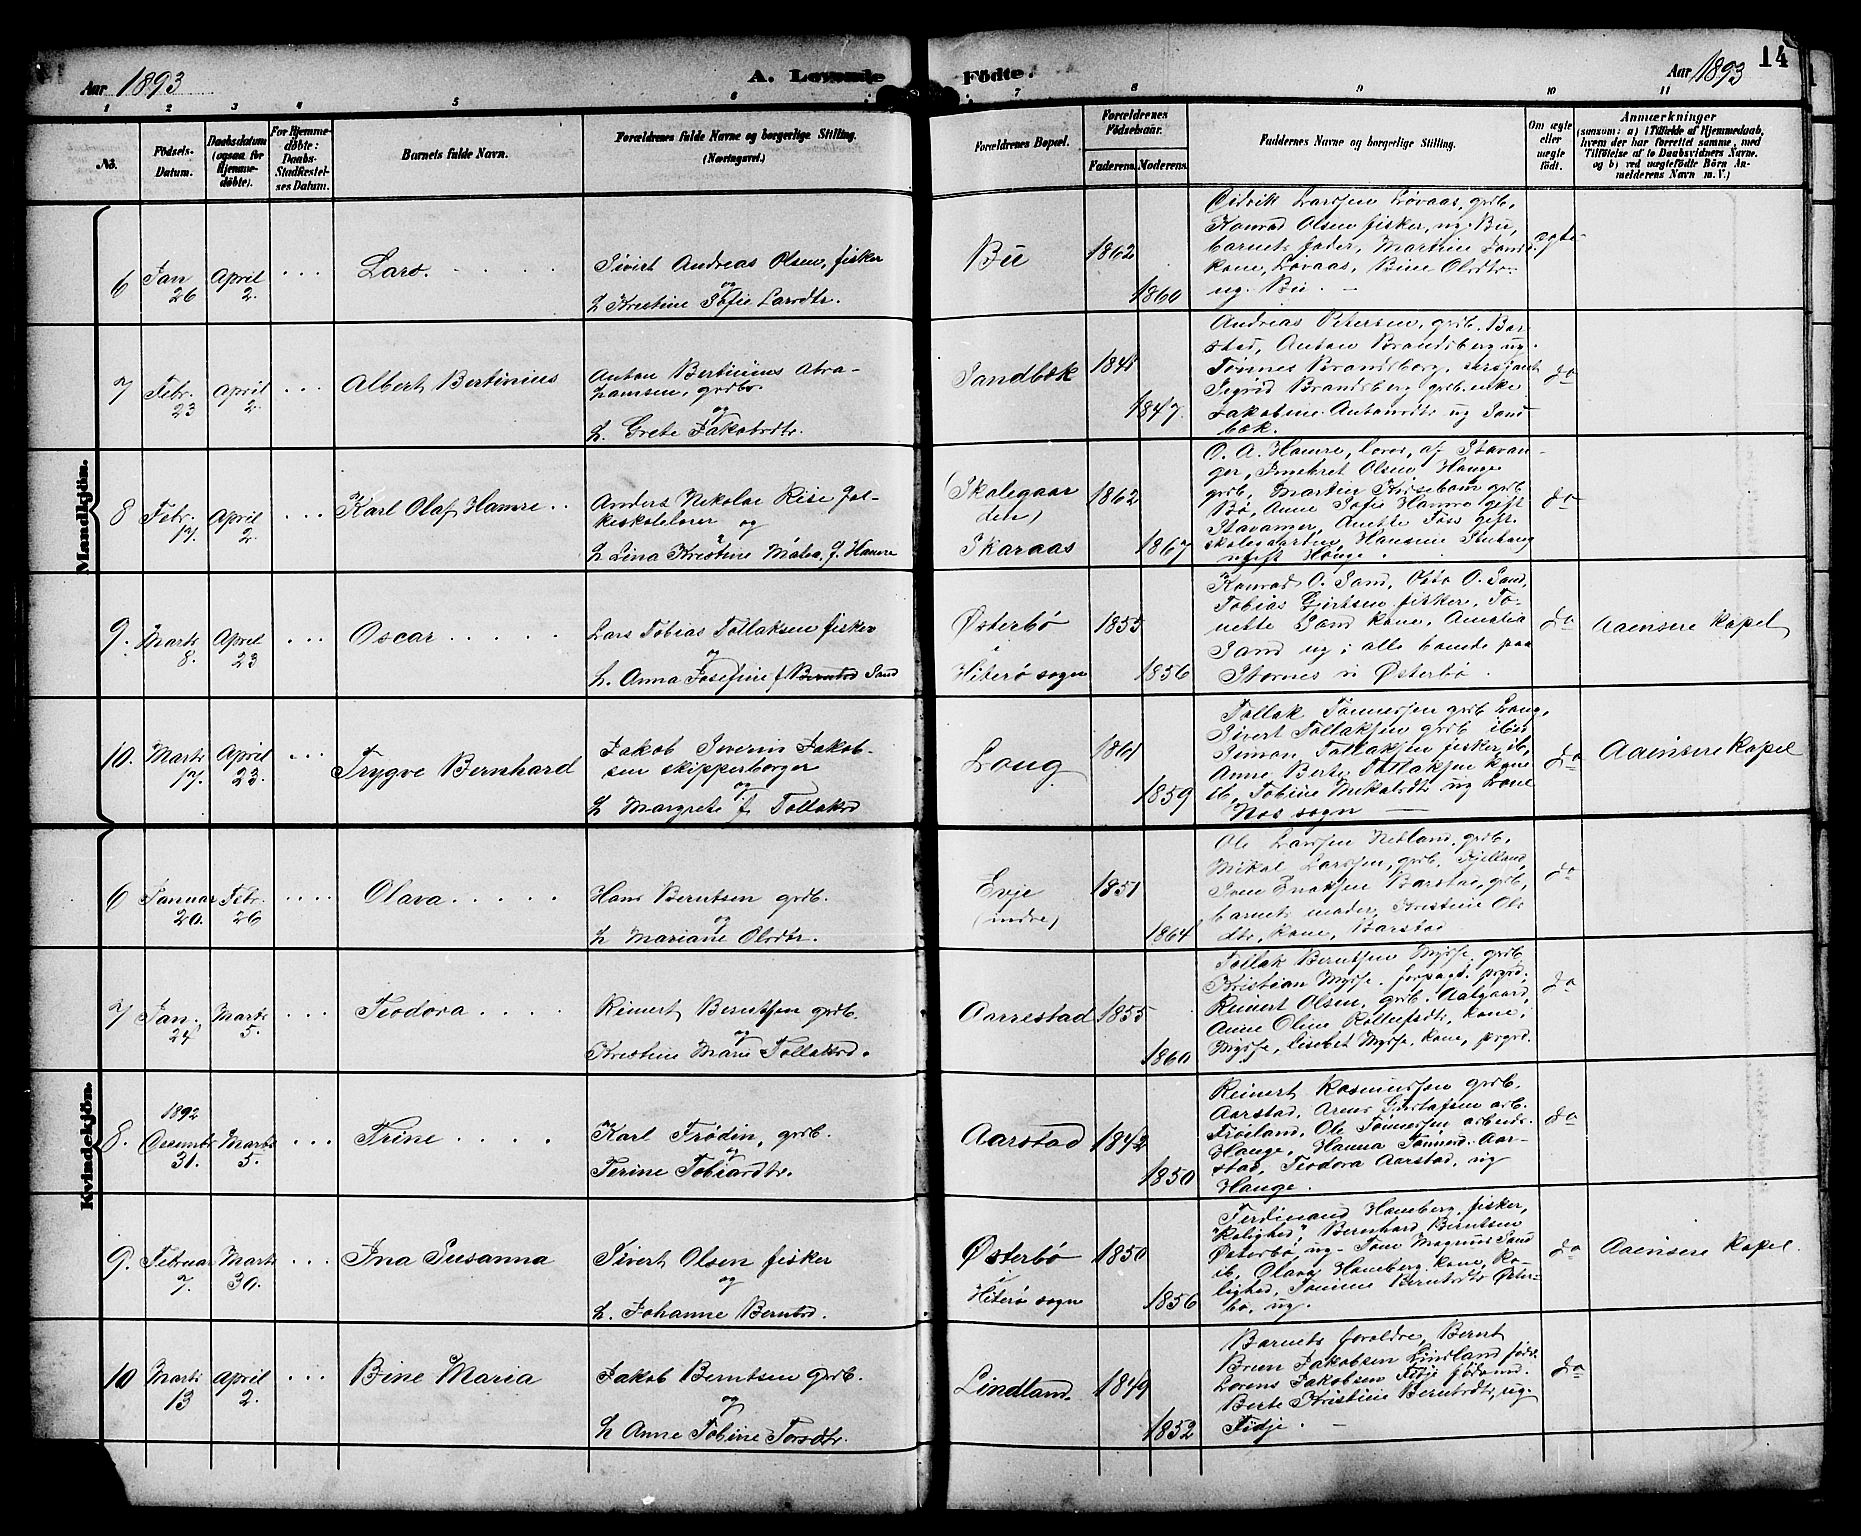 14
Aar 1893
A. Levende Födte.
Aar 1893
1 2 3 4 5 6 7 8 9 10 11
No.
Födsels-Datum.
Daabsdatum (ogsaa for Hjemmedöbte).
For Hjemmedöbte: Daabs-Stadfæstelses Datum.
Barnets fulde Navn.
Forældrenes fulde Navne og borgerlige Stilling. (Næringsvei.)
Forældrenes Bopæl.
Forældrenes Födselsaar.
Faderens. Moderens.
Faddernes Navne og borgerlige Stilling.
Om ægte eller uægte født.
Anmærkninger
(saasom: a) i Tilfælde af Hjemmedaab, hvem der har forrettet samme, med Tilföielse af to Daabsvidners Navne. og b) ved uægtefödte Börn Anmelderens Navn m. V.)
Mandkjön.
6 Jan 26 April 2. Lars.
Sivert Andreas Olsen, fisker
og
h Kristine Sofie Larsdtr.
Bu 1862 1860
Larssen Løvaas, grdb.
Konrad Olsen fisker, ug. Bu,
barnets fader, Martine
kone, Løvaas, Bine Olsdtr
ug. Bu.
ægte
7 Febr. 23 April 2. Albert Bertinius
Anton Bertinius Abra-
hamsen, grdbr.
og
h. Grete Jakobsdtr.
Sandbæk 1847.
Andreas Petersen, grdb. Bar-
stad, Anton Brandsberg ug.
Tønnes Brandsberg, sersjant
Sigrid Brandsberg grdb.enke
Jakobine Antonsdtr ug Sand
bæk.
do
8 Febr. 17. April 2. Karl Olaf Hamre
Anders Nikolai Rise Fol-
keskolelærer og
h Lina Kristine Malea, f. Hamre
(Skolegaar
den)
Skaraas
1862 1867
O. A. Hamre, af Stavan-
ger, Olsen Hauge
grdb, Martin grdb.
Bø, Anne Sofie Hamre gift
Stavanger, Anette Foss gift
skolegaarden, Hansine
ugift Hauge.
do
9. Marts 8. April 23 Oscar
Lars Tobias Tollaksen fisker
og
h. Anna Josefine f Berntsd Sand
Østerbø
i
Hiterø sogn
1855 1856
Konrad O. Sand, Otto O. Sand,
Tobias fisker, To-
nette Sand kone, Amalia
Sand ug; alle boende paa
Stornes v/ Østerbø.
do Aaensere Kapel
10. Marts 17. April 23. Trygve Bernhard
Jakob Severin Jakob-
sen skipperborger
og
h Margrete f. Tollaksd
Loug 1861 1859
Tollak Tønnessen grdb Loug,
Sivert Tollaksen grdb ibid
Simon Tollaksen fisker, ib,
Anne Berte Tollaksen kone
ib, Tobine Mikalsdtr ug
Nes sogn
do Aaensere Kapel
Kvindekjön.
6 Januar 20. Febr. 26 Olava
Hans Berntsen grdb.
og
h Mariane Olsdtr.
Evje
(indre)
1851 1864
Ole Larssen Netland, grdb,
Mikal Larssen, grdb. Fjelland,
Barstad, grdb,
barnets moder, Kristine Ols
dtr, kone, Barstad
do
7 Jan. 24 Marts 5. Teodora
Reinert Berntsen grdb.
og
Kristine Marie Tollaksd.
Aarrestad 1855 1860
Tollak Berntsen Mysse, grdb
Kristian Mysse,
Reinert Olsen, grdb. Aatgaard,
Anne Oline kone,
Mysse, Lisebet Mysse, kone,
do
8. 1892 Decembr 31. Marts 5. Trine
Karl Frödin, grdb.
og
Terine Tobiasdtr.
Aarstad 1842 1850
Reinert Rasmussen grdb.
Aarstad, Arne Gustafsen arb.
Frøiland, Ole Tønnessen arbeids.
Hauge, Hanna Tønnesd. Aar-
stad, Teodora Aarstad, ug
Hauge.
do
9. Februar 7. Marts 30. Ina Susanna
Sivert Olsen fisker
og
h. Johanne Berntsd.
Østerbø
i
Hiterø sogn
1850 1856
Ferdinand Haneberg, fisker,
Rolighed, Bernhard Berntsen
Østerbø, ug. Tom Magnus Sand
ib, Olava Haneberg, kone, Ro-
lighed, Tomine Berntsdtr Øster-
bø, ug.
do Aaensere Kapel.
10 Marts 13 April 2. Bine Maria
Jakob Berntsen grdb.
og
h Anne Tobine Torsdtr.
Lindland. 1849 1852
Barnets foreldre, Bernt
Jakobsen Lindland
Lorens Jakobsen Fidje
Berte Kristine Berntsdtr, ug.
Fidje.
do